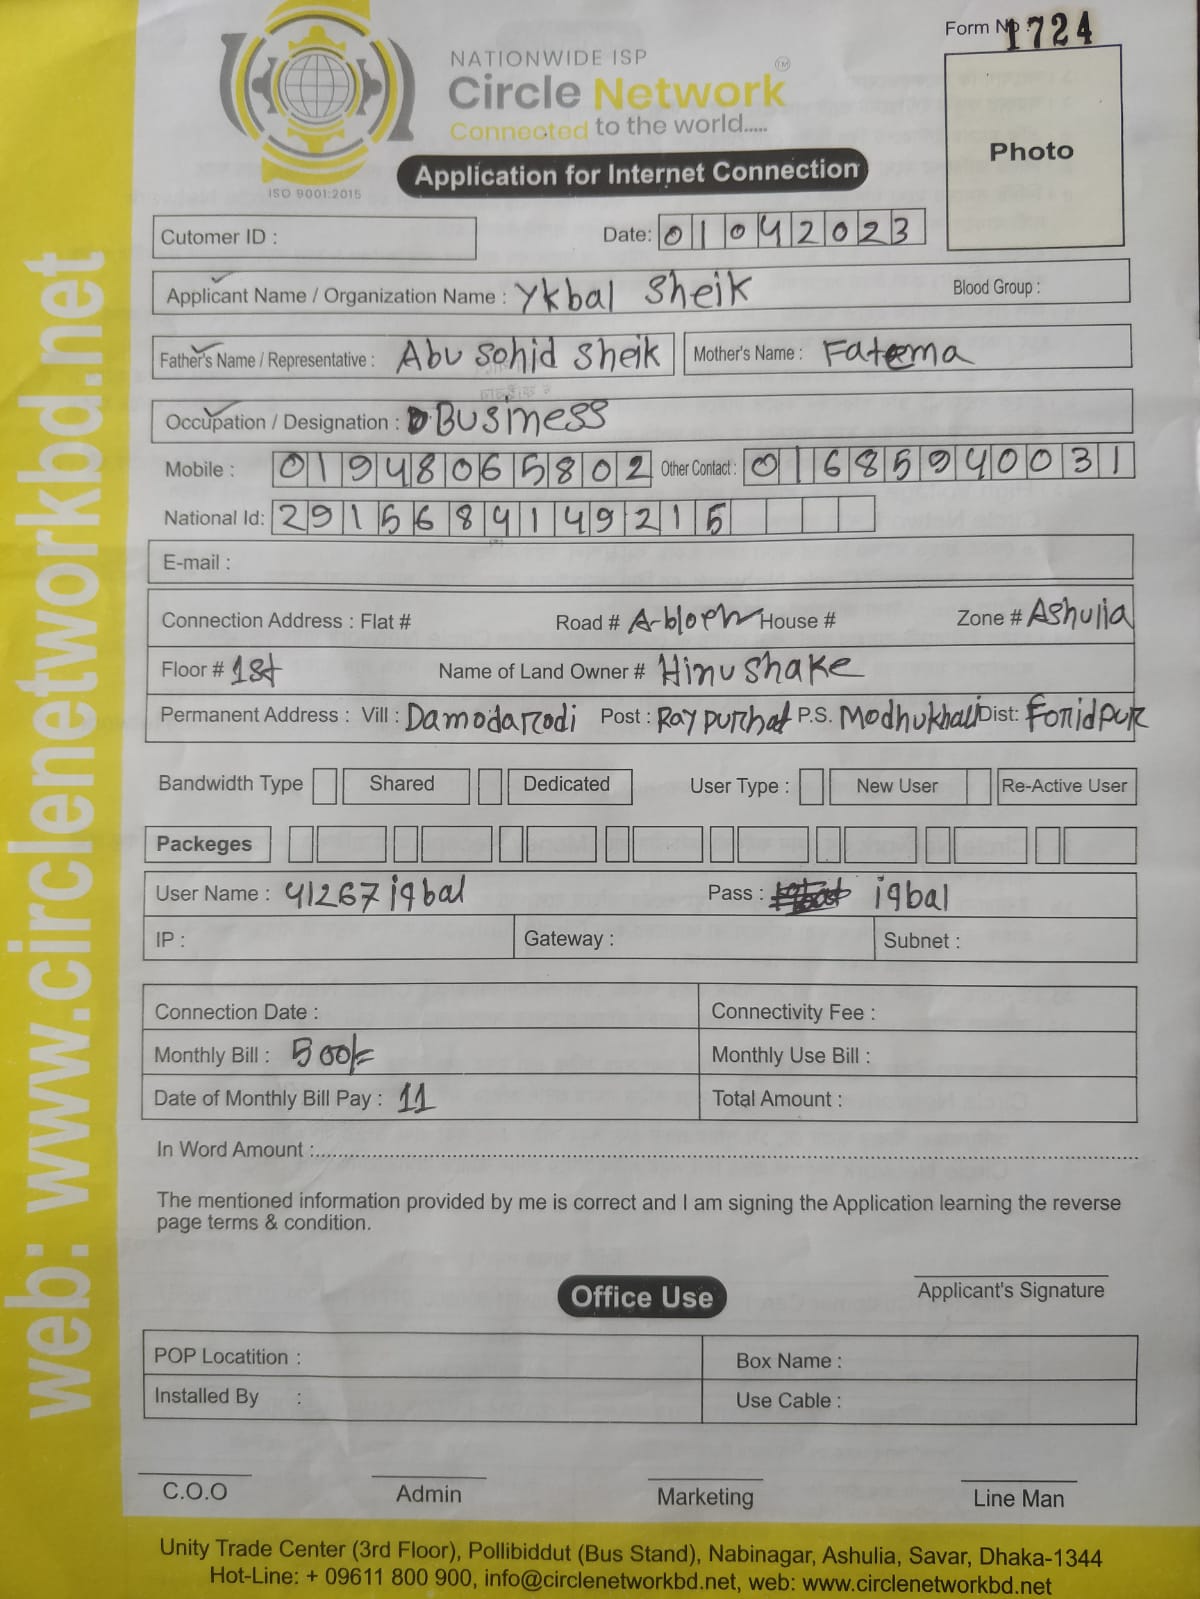 Form No : 1724
NATIONWIDE ISP
Circle Network TM
Connected to the world.....
ISO 9001:2015
Application for Internet Connection
Photo
Cutomer ID :
Date: 01042023
Applicant Name / Organization Name : Ykbal Sheik Blood Group :
Father's Name / Representative : Abu Sohid Sheik Mother's Name : Fatema
Occupation / Designation : Business
Mobile : 01948065802 Other Contact : 01685940031
National Id: 2915684149215
E-mail :
Connection Address : Flat # Road # A-bloch House # Zone # Ashulia
Floor # 1st Name of Land Owner # Hinu Shake
Permanent Address : Vill : Damodarodi Post : Raypurhat P.S. Modhukhali Dist: Foridpur
Bandwidth Type Shared Dedicated User Type : New User Re-Active User
Packeges
User Name : 41267iqbal Pass : iqbal
IP : Gateway : Subnet :
Connection Date : Connectivity Fee :
Monthly Bill : 500/= Monthly Use Bill :
Date of Monthly Bill Pay : 11 Total Amount :
In Word Amount :
The mentioned information provided by me is correct and I am signing the Application learning the reverse
page terms & condition.
Applicant's Signature
Office Use
POP Locatition : Box Name :
Installed By : Use Cable :
C.O.O Admin Marketing Line Man
Unity Trade Center (3rd Floor), Pollibiddut (Bus Stand), Nabinagar, Ashulia, Savar, Dhaka-1344
Hot-Line: + 09611 800 900, info@circlenetworkbd.net, web: www.circlenetworkbd.net
web: www.circlenetworkbd.net